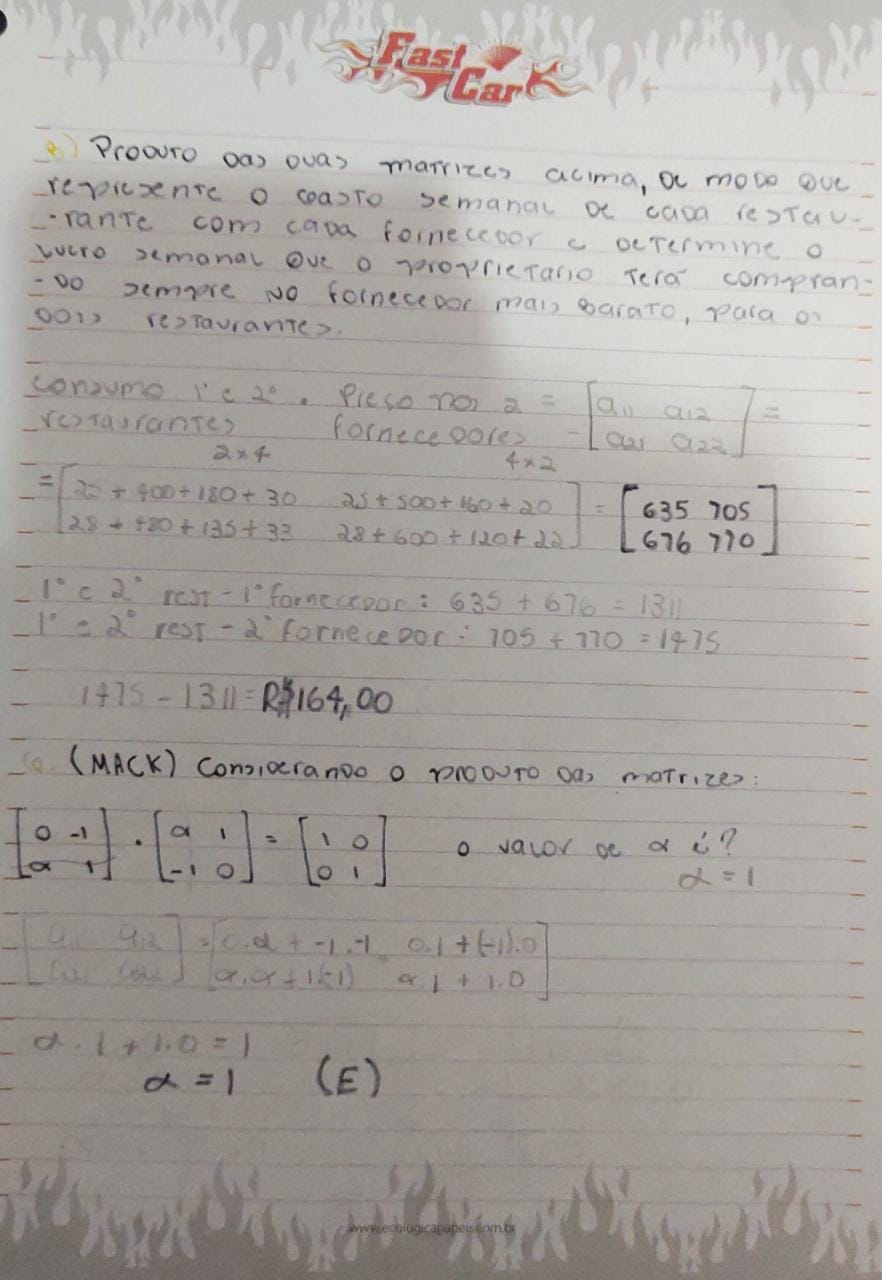 Fast Car
B) Produto das duas matrizes acima, de modo que
represente o gasto semanal de cada restau-
-rante com cada fornecedor e determine o
lucro semanal que o proprietario terá compran-
-do sempre no fornecedor mais barato, para os
dois restaurantes.
Consumo 1° e 2° . Preço nos 2 = [a11 a12] =
restaurantes fornecedores = [a21 a22]
2x4 4x2
= [25 + 400 + 180 + 30 25 + 500 + 160 + 20] = [635 705]
[28 + 480 + 135 + 33 28 + 600 + 120 + 22] [676 770]
1° e 2° rest - 1° fornecedor: 635 + 676 = 1311
1° e 2° rest - 2° fornecedor: 705 + 770 = 1475
1475 - 1311 = R$164,00
(MACK) Considerando o produto das matrizes:
[0 -1] . [α 1] = [1 0] o valor de α é?
[α 1] [-1 0] [0 1] α = 1
[a11 a12] = [0.α + -1.-1 0.1 + (-1).0]
[a21 a22] [α.α + 1(-1) α.1 + 1.0]
α . 1 + 1.0 = 1
α = 1 (E)
www.ecologicapapeis.com.br